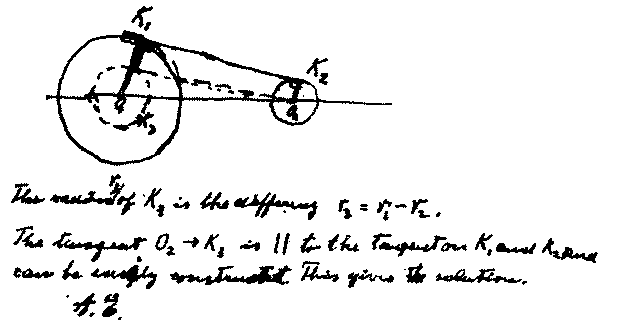 K₁
K₂
K₃
The radius r₃ of K₃ is the differeng r₃ = r₁ - r₂.
The tangent O₂ → K₃ is || to the tangent on K₁ and K₂ and
can be easily constructed. This gives the solution.
A. E.